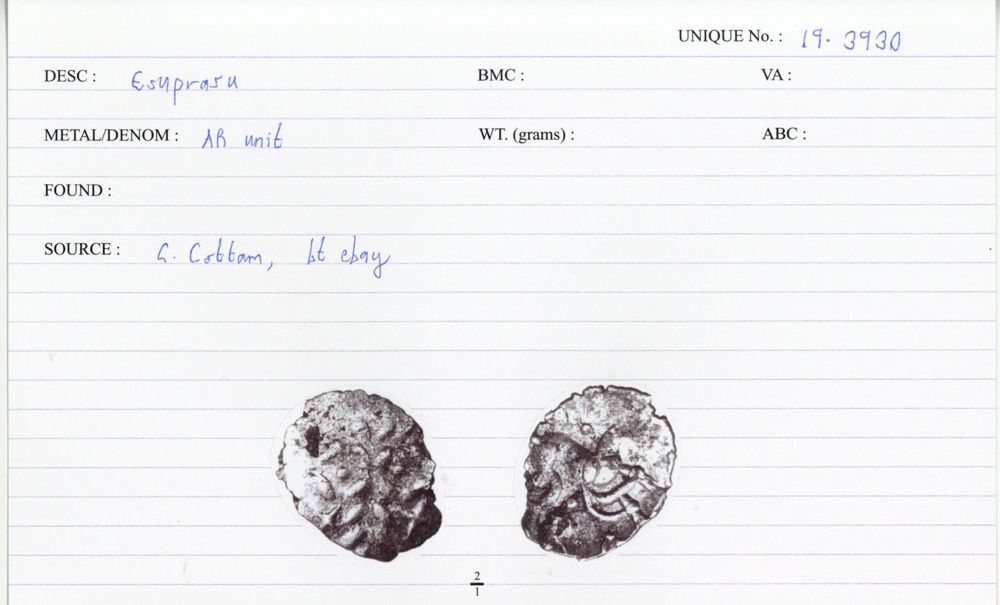 UNIQUE No. : 19. 3930
DESC : Esuprasu BMC : VA :
METAL/DENOM : AR unit WT. (grams) : ABC :
FOUND :
SOURCE : G. Cottam, bt ebay
2
1